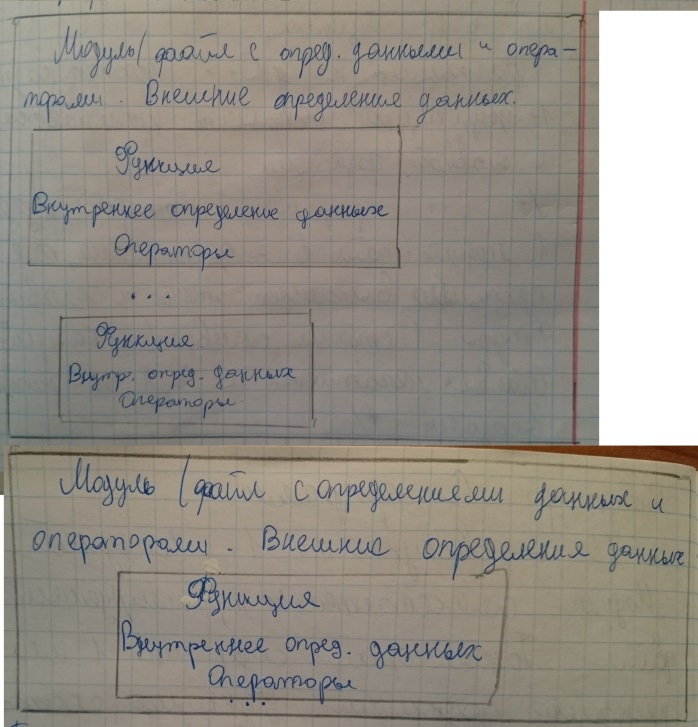 Модуль (файл с опред. данными и опера-
торами. Внешние определения данных.
Функция
Внутреннее определение данных
Операторы
...
Функция
Внутр. опред. данных
Операторы.
Модуль (файл с определениями данных и
операторами. Внешние определения данных
Функция
Внутреннее опред. данных
Операторы
...